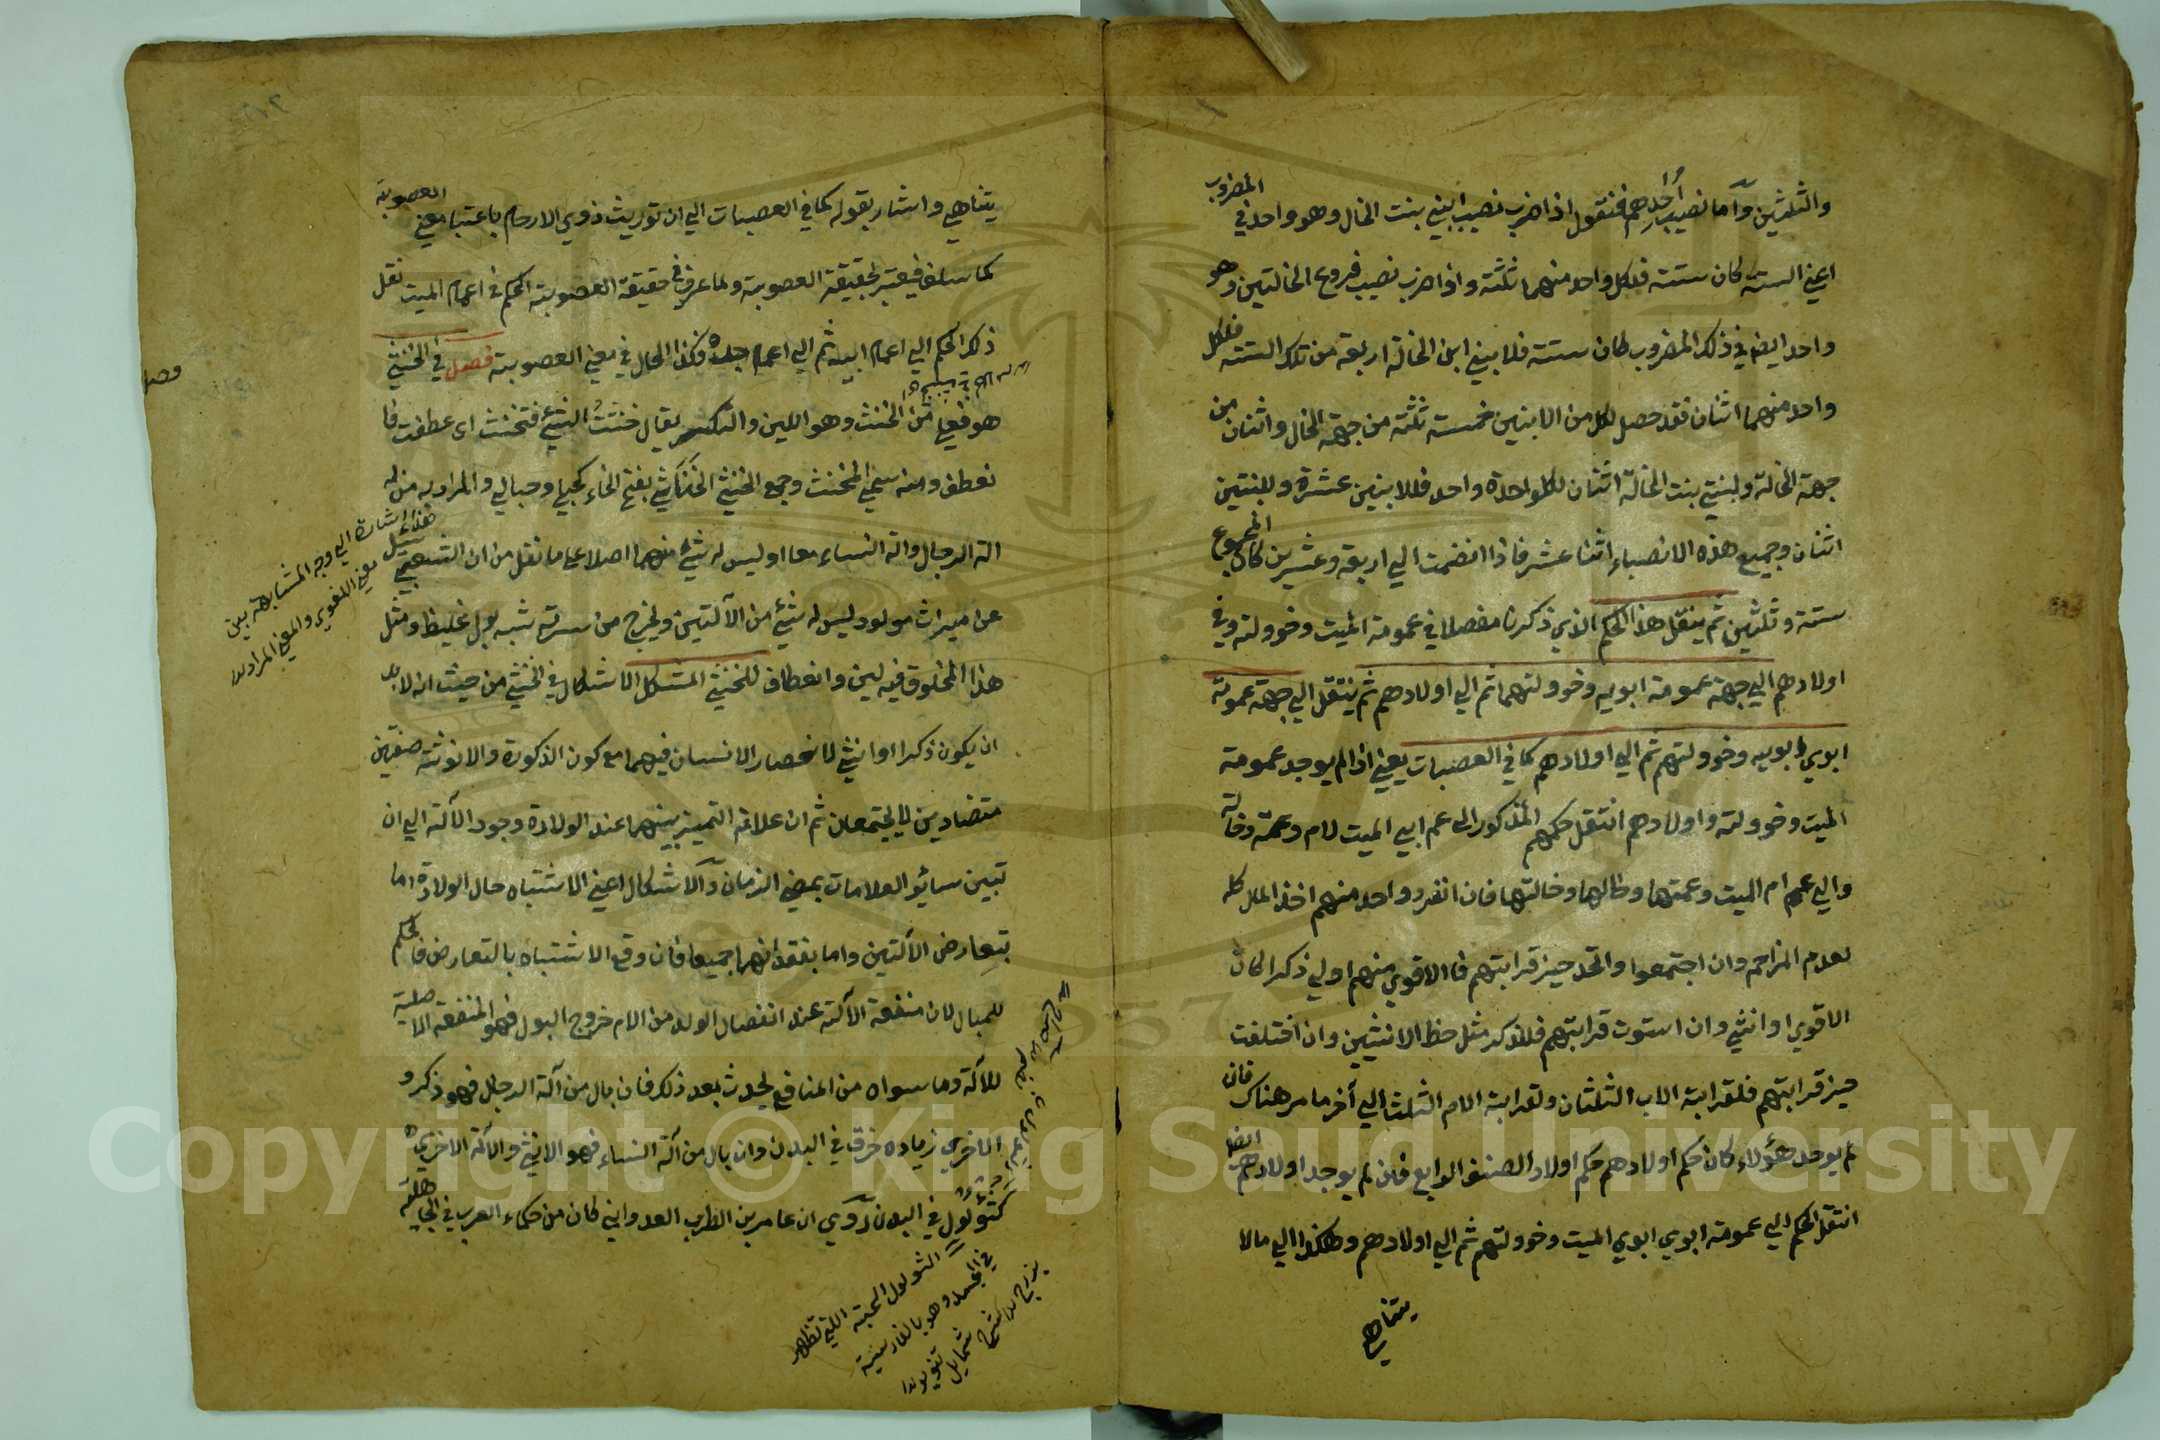 والثلثين وأما نصيب أحدهم فنقول اذا ضرب نصيب ابني بنت الخال وهو واحد في المضروب
اعني الستة كان ستة فلكل واحد منهما ثلثة واذا ضرب نصيب فروع الخالتين وهو
واحد ايضا في ذلك المضروب كان ستة فلابني ابن الخالة اربعة من تلك الستة فلكل
واحد منهما اثنان فقد حصل لكل من الابنين خمسة ثلثة من جهة الخال واثنان من
جهة الخالة ولبنتي بنت الخالة اثنان لكل واحدة واحد فللابنين عشرة وللبنتين
اثنان وجميع هذه الانصباء اثنا عشر فاذا انضمت الي اربعة وعشرين كان المجموع
ستة وثلثين ثم ينتقل هذا الحكم الذي ذكرنا مفصلا في عمومة الميت وخوولته وفي
اولادهم الي جهة عمومة ابويه وخوولتهما ثم الي اولادهم ثم ينتقل الي جهة عمومة
ابوي ابويه وخوولتهم ثم الي اولادهم كما في العصبات يعني اذا لم يوجد عمومة
الميت وخوولته واولادهم انتقل حكمهم المذكور الي عم ابي الميت لام وعمته وخالة
والي عم ام الميت وعمتها وخالها وخالتها فان انفرد واحد منهم اخذ المال كله
لعدم المزاحم وان اجتمعوا واتحد حيز قرابتهم فالاقوي منهم اولي ذكرا كان
الاقوي او انثي وان استوت قرابتهم فللذكر مثل حظ الانثيين وان اختلفت
حيز قرابتهم فلقرابة الاب الثلثان ولقرابة الام الثلث الي آخر ما مر هناك فان
لم يوجد هؤلاء كان حكم اولادهم حكم اولاد الصنف الرابع فان لم يوجد اولادهم ايضا
انتقل الحكم الي عمومة ابوي ابوي الميت وخوولتهم ثم الي اولادهم وهكذا الي مالا
يتناهي
يتناهي واشار بقوله كما في العصبات الي ان توريث ذوي الارحام باعتبار معني العصوبة
كما سلف فيعتبر بحقيقة العصوبة ولما عرف في حقيقة العصوبة الحكم في اعمام الميت نقل
ذلك الحكم الي اعمام ابيه ثم الي اعمام جده فكذا الحال في معني العصوبة فصل في الخنثي
هو فعلي من الخنث وهو اللين والتكسر يقال خنثت الشئ فتخنث اى عطفته فا
نعطف ومنه سمي المخنث وجمع الخنثي الخناثي بفتح الخاء كحبلي وحبالي والمراد به من له
الة الرجال والة النساء معا او ليس له شئ منهما اصلا علي ما نقل من ان الشعبي سئل
عن ميراث مولود ليس له شئ من الآلتين ويخرج من سرته شبه بول غليظ ومثل
هذا المخلوق فيه لين وانعطاف للخنثي المشكل الاشكال في الخنثي من حيث انه لابد
ان يكون ذكرا او انثي لانحصار الانسان فيهما مع كون الذكورة والانوثة صفتين
متضادين لا يجتمعان ثم ان علامة التمييز بينهما عند الولادة وجود الآلة الي ان
تبين سائر العلامات بمضي الزمان والاشكال اعني الاشتباه حال الولادة اما
بتعارض الآلتين واما بفقدانهما جميعا فان وقع الاشتباه بالتعارض فالحكم
للمبال لان منفعة الآلة عند انفصال الولد من الام خروج البول فهو المنفعة الاصلية
للآلة وما سواه من المنافع يحدث بعد ذلك فان بال من آلة الرجال فهو ذكر و
الاخري زيادة خرق في البدن وان بال من آلة النساء فهو الانثي والآلة الاخري
كثؤلول في البدن روي ان عامر بن الظرب العدواني كان من حكماء العرب في الجاهلية
هذا اشارة الي وجه المشابهة بين
معني اللغوي والمعني المراد
الثولول الحبة التي تظهر
في الجسد وهو بالفارسية